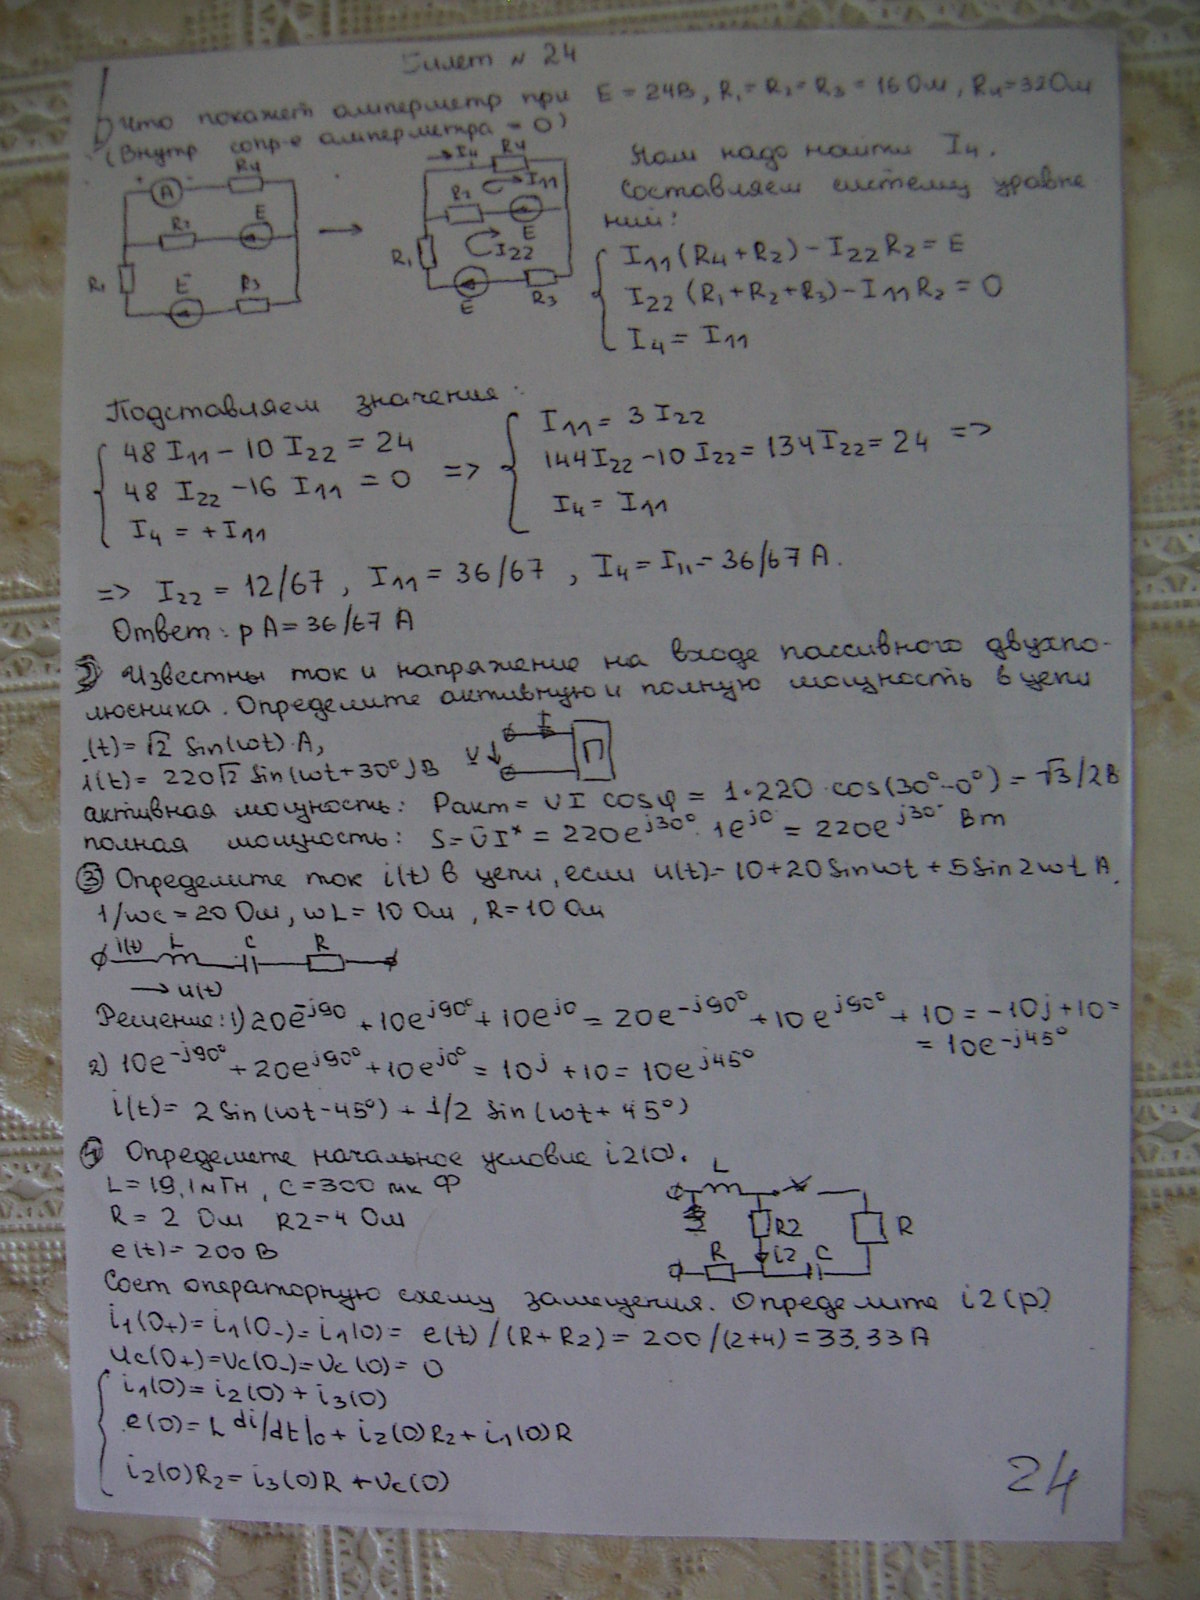 Билет N 24
Что покажет амперметр при E = 24В, R₁ = R₂ = R₃ = 16 Ом, R₄ = 32 Ом
(Внутр сопр-е амперметра = 0)
A R₄
R₂ E
R₁
E R₃
I₄ R₄
R₂ I₁₁
E
R₁ I₂₂
E R₃
Нам надо найти I₄.
Составляем систему уравне
ний:
I₁₁(R₄+R₂) – I₂₂R₂ = E
I₂₂(R₁+R₂+R₃) – I₁₁R₂ = 0
I₄ = I₁₁
Подставляем значения:
48 I₁₁ – 10 I₂₂ = 24
48 I₂₂ – 16 I₁₁ = 0 =>
I₄ = + I₁₁
I₁₁ = 3 I₂₂
144I₂₂ – 10 I₂₂ = 134I₂₂ = 24 =>
I₄ = I₁₁
=> I₂₂ = 12/67, I₁₁ = 36/67, I₄ = I₁₁ = 36/67 A.
Ответ: pA = 36/67 A
2) Известны ток и напряжение на входе пассивного двухпо-
люсника. Определите активную и полную мощность в цепи
i(t) = √2 sin(ωt) A,
i(t) = 220√2 sin(ωt+30°) В
I
U П
активная мощность: Pакт = UI cosφ = 1·220·cos(30°–0°) = √3/2В
полная мощность: S = UI* = 220e^j30° · 1e^j0 = 220e^j30° Вт
③ Определите ток i(t) в цепи, если u(t) = 10+20 Sinωt + 5Sin2ωt A.
1/ωc = 20 Ом, ωL = 10 Ом, R = 10 Ом
i(t) L C R
u(t)
Решение: 1) 20e^-j90 + 10e^j90° + 10e^j0 = 20e^-j90° + 10e^j90° + 10 = –10j + 10 =
= 10e^-j45°
2) 10e^-j90° + 20e^j90° + 10e^j0° = 10j + 10 = 10e^j45°
i(t) = 2 Sin(ωt–45°) + 1/2 Sin(ωt+45°)
④ Определите начальное условие i2(0).
L = 19,1мГн, C = 300 мк Ф
R = 2 Ом R2 = 4 Ом
e(t) = 200 В
L
R2 R
R i2 C
Сост операторную схему замещения. Определите i2(p)
i₁(0+) = i₁(0–) = i₁(0) = e(t)/(R+R₂) = 200/(2+4) = 33.33 A
Uc(0+) = Uc(0–) = Uc(0) = 0
i₁(0) = i₂(0) + i₃(0)
e(0) = L di/dt|₀ + i₂(0)R₂ + i₁(0)R
i₂(0)R₂ = i₃(0)R + Uc(0)
24